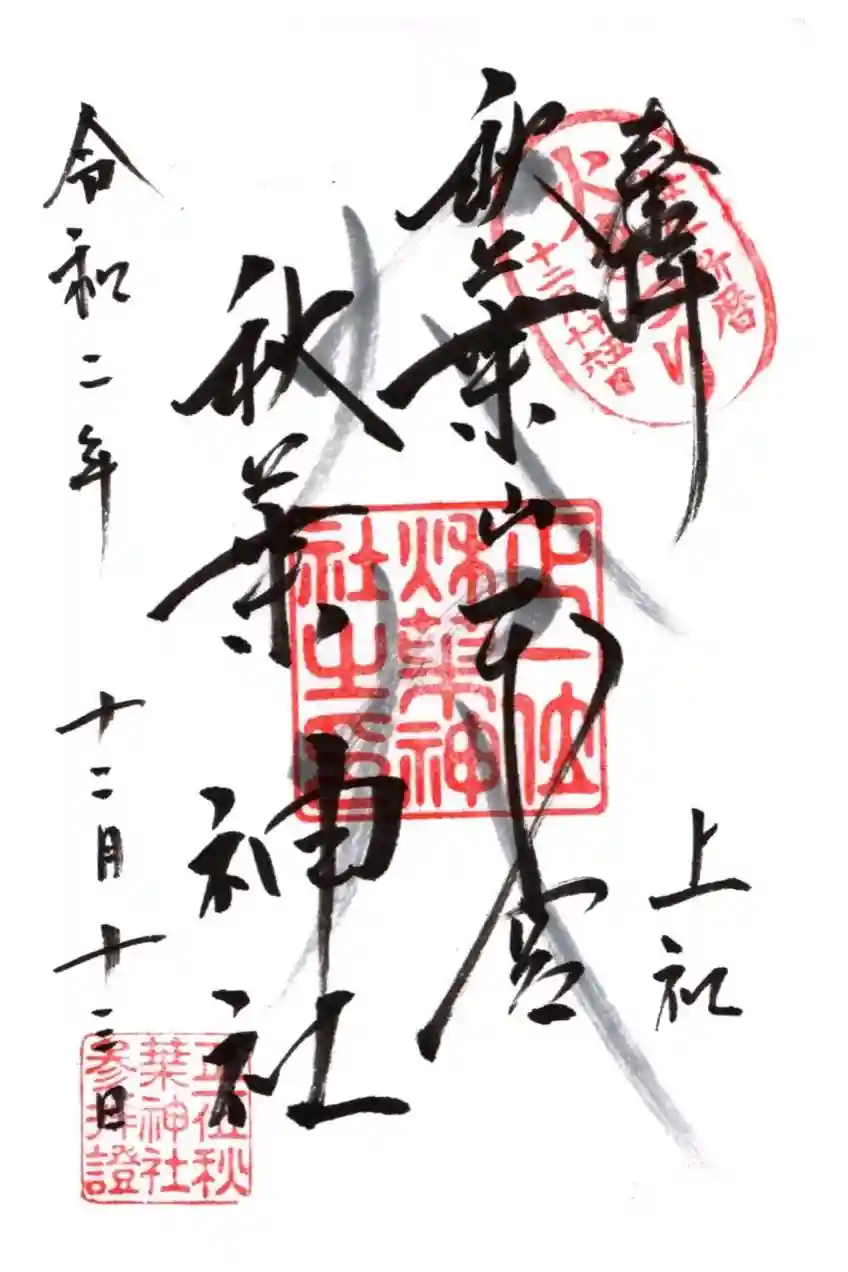 奉拝
上社
秋葉山本宮
秋葉神社
令和二年十二月十三日
正一位
秋葉神
社之印
正一位秋
葉神社
参拝證